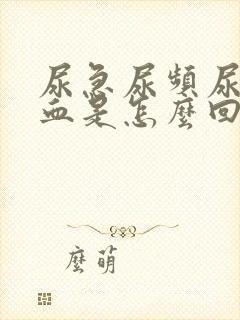 尿急尿頻尿
血是怎麼回
麼萌